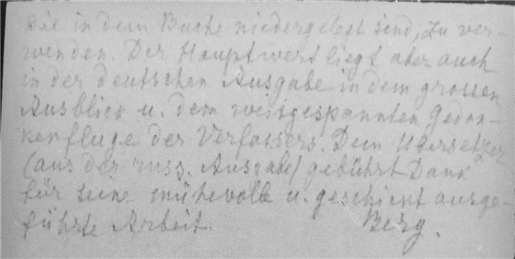 die in dem Buche niedergelegt sind, zu ver-
wenden. Der Hauptwert liegt aber auch
in der deutschen Ausgabe in dem grossen
Ausblick u. dem weitgespannten Gedan-
kenfluge der Verfassers. Dem Übersetzer
(aus der russ. Ausgabe) gebührt Dank
für seine mühevolle u. geschickt ausge-
führte Arbeit. Berg.